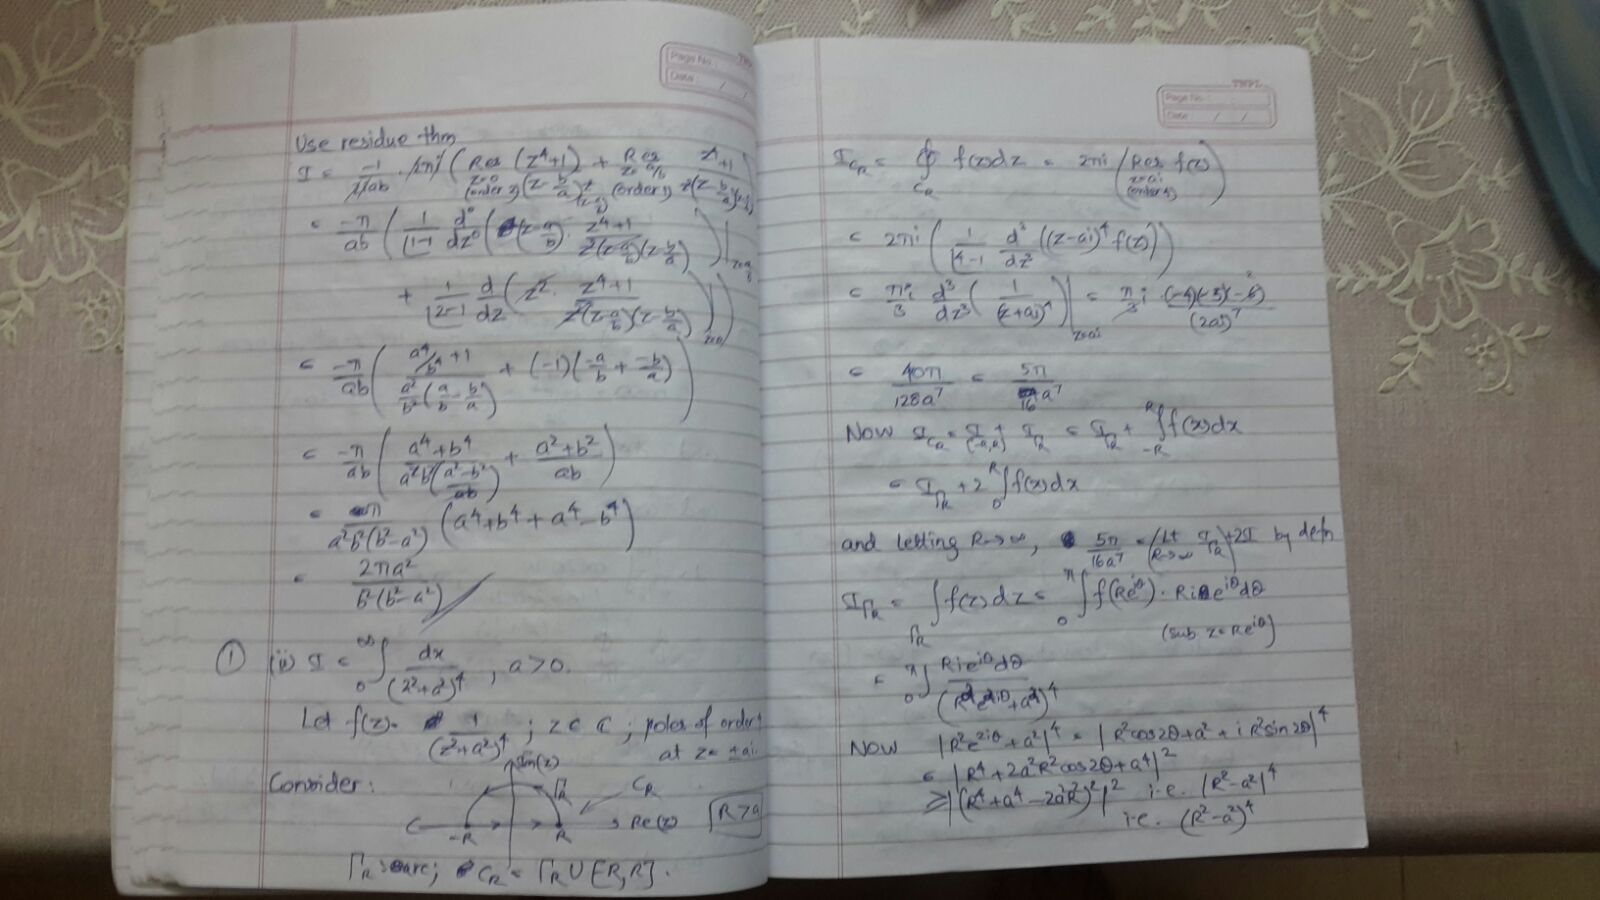 Page No.:
Date: / /
Use residue thm
I = -1/2iab · 2πi (Res z=0 (order 2) (z⁴+1) + Res z=a/b (order 1) z⁴+1
= -π/ab (1/|1-1 d⁰/dz⁰ ((z-a/b) · z⁴+1/z²(z-a/b)(z-b/a))|
+ 1/|2-1 d/dz (z² · z⁴+1/z²(z-a/b)(z-b/a))|z=0)
= -π/ab (a⁴/b⁴+1 / a²/b²(a/b-b/a) + (-1)(-a/b + -b/a))
= -π/ab (a⁴+b⁴ / a²b²(a²-b²/ab) + a²+b²/ab)
= π/a²b²(b²-a²) (a⁴+b⁴+a⁴-b⁴)
= 2πa²/b²(b²-a²)
① (ii) I = ∞∫0 dx/(x²+a²)⁴, a>0.
Let f(z) = 1/(z²+a²)⁴; z∈C; poles of order 4
at z=±ai.
Consider:
Im(z)
ΓR
CR
-R
R
Re(z)
R>a
ΓR → arc; CR = ΓR U [-R,R].
TNPL
Page No.:
Date: / /
ICR = ∮CR f(z)dz = 2πi (Res z=ai (order 4) f(z))
= 2πi (1/|4-1 d³/dz³ ((z-ai)⁴ f(z)))
= πi/3 d³/dz³ (1/(z+ai)⁴)|z=ai = π/3 i (-4)(-5)(-6)/(2ai)⁷
= 40π/128a⁷ = 5π/16a⁷
Now ICR = I(-R,R) + IΓR = IΓR + R∫-R f(x)dx
= IΓR + 2 R∫0 f(x)dx
and letting R→∞, 5π/16a⁷ = (Lt R→∞ IΓR)+2I by defn
IΓR = ∫ΓR f(z)dz = π∫0 f(Re^iθ)·Rie^iθdθ
(sub z=Re^iθ)
= π∫0 Rie^iθdθ/(R²e^2iθ+a²)⁴
Now |R²e^2iθ+a²|⁴ = |R²cos2θ+a²+iR²sin2θ|⁴
= |R⁴+2a²R²cos2θ+a⁴|²
≥ |(R⁴+a⁴-2a²R²)|² i.e. |R²-a²|⁴
i.e. (R²-a²)⁴